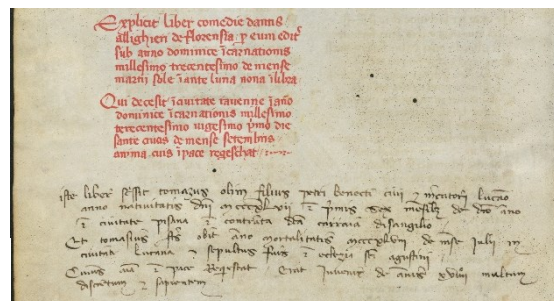 Explicit liber comedie dantis
allighieri de florensia p eum edit
sub anno dominice icarnationis
millesimo trecentesimo de mense
martii sole i ante luna nona i libra
Qui decesit i civitate ravenne i ano
dominice icarnationis millesimo
terecentesimo vigesimo pmo die
sante crucis de mense setembris
anima cuis i pace regeschat
iste liber scrissit tomazus olim filius petri benecti civis z mercatoris lucan
anno nativitatis dni mcccxlvii z primis sex mesib de dto ano
i civitate pisana z contrata dta carraia disangilio
Et tomasius obiit ano mortalitatis mcccxlviii de mse julii in
civitate lucana z sepultus fuit z eclezia sti agustini
Cuius aia z pace Requescat Erat juvenis de annis xviiii multum
discretum z sapientem